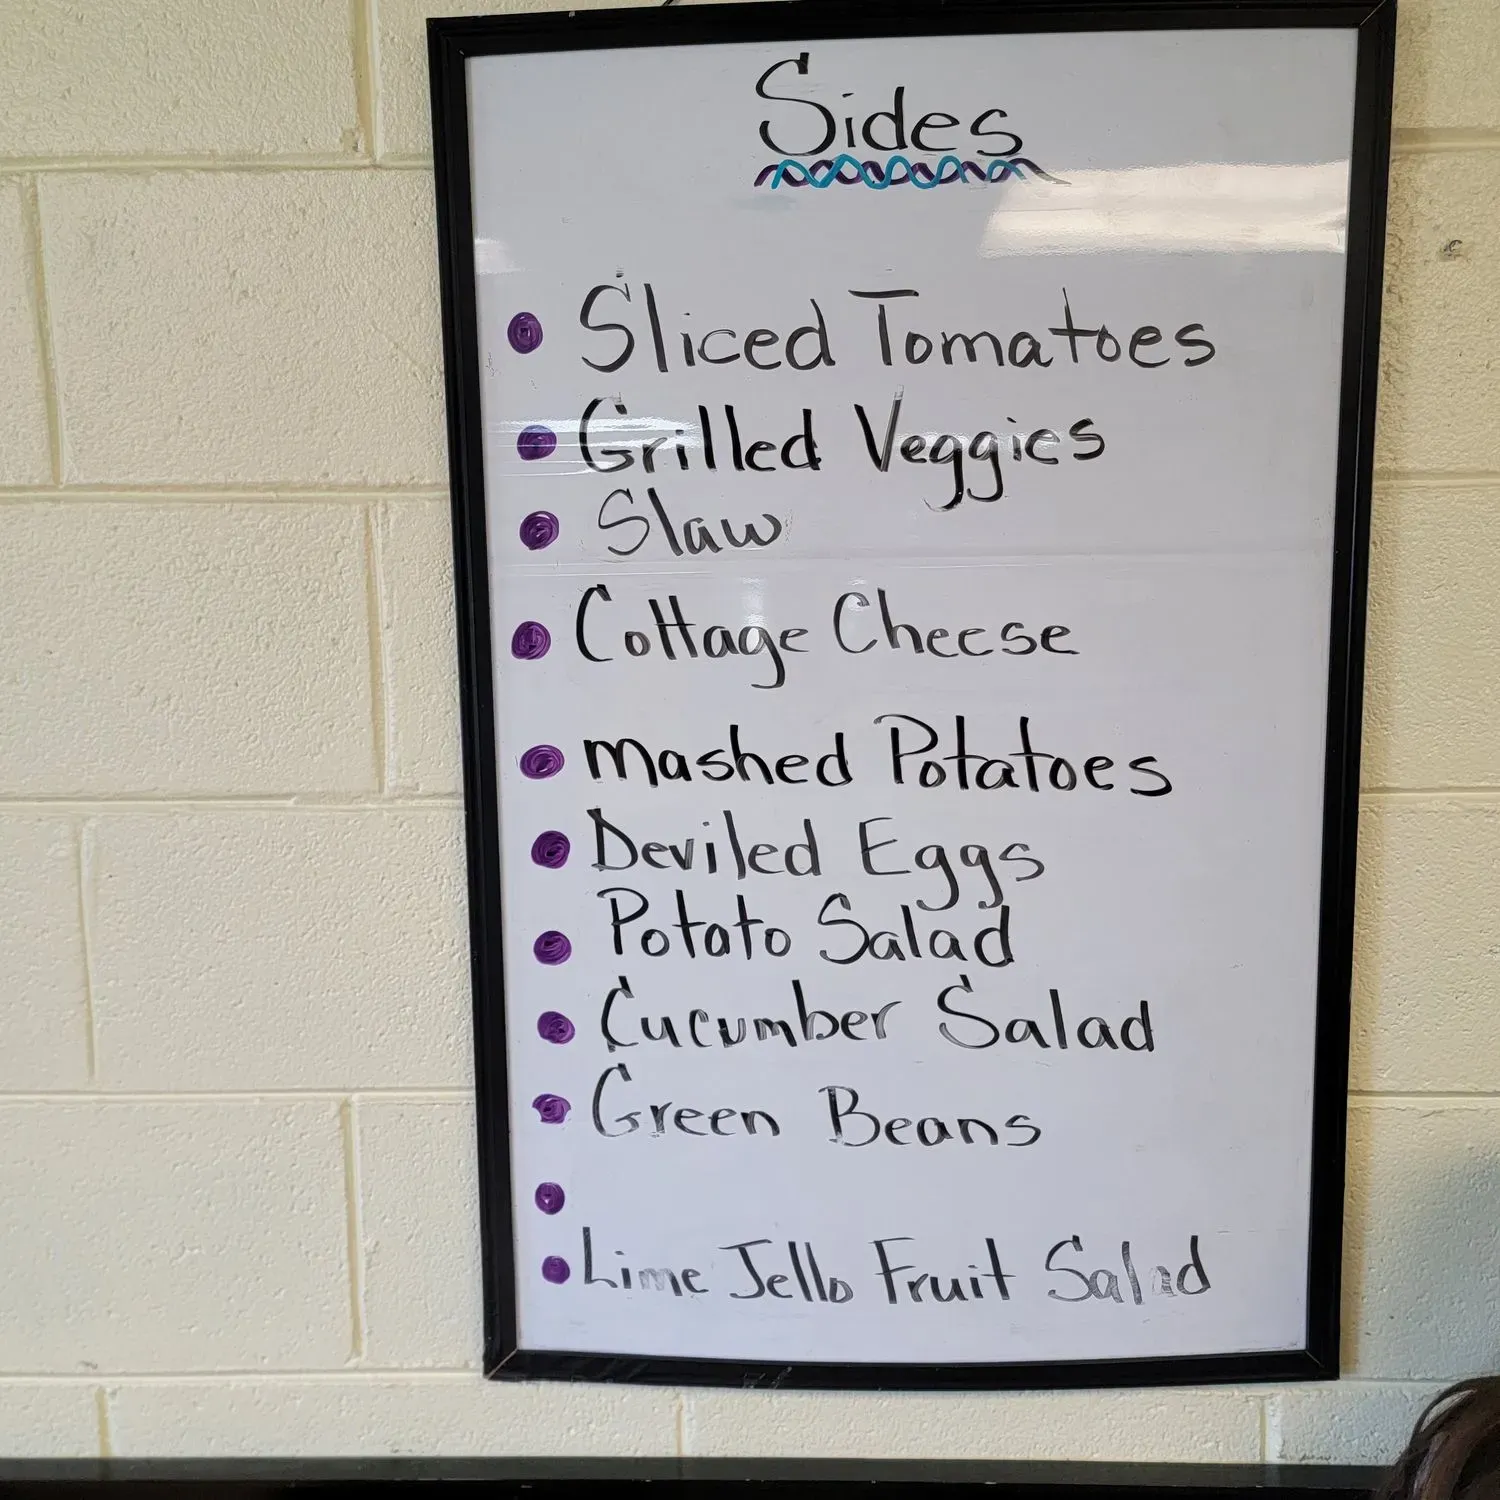 Sides
Sliced Tomatoes
Grilled Veggies
Slaw
Cottage Cheese
mashed Potatoes
Deviled Eggs
Potato Salad
Cucumber Salad
Green Beans
Lime Jello Fruit Salad